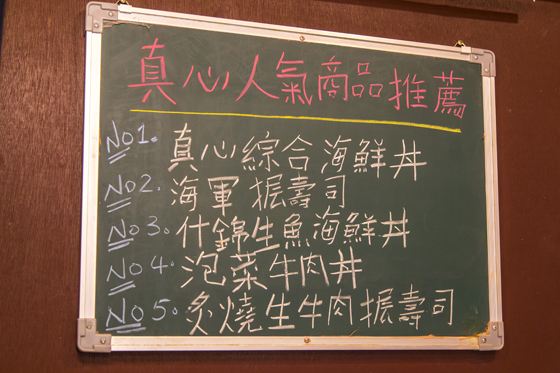 真心人氣商品推薦
No1. 真心綜合海鮮丼
No2. 海軍握壽司
No3. 什錦生魚海鮮丼
No4. 泡菜牛肉丼
No5. 炙燒生牛肉握壽司